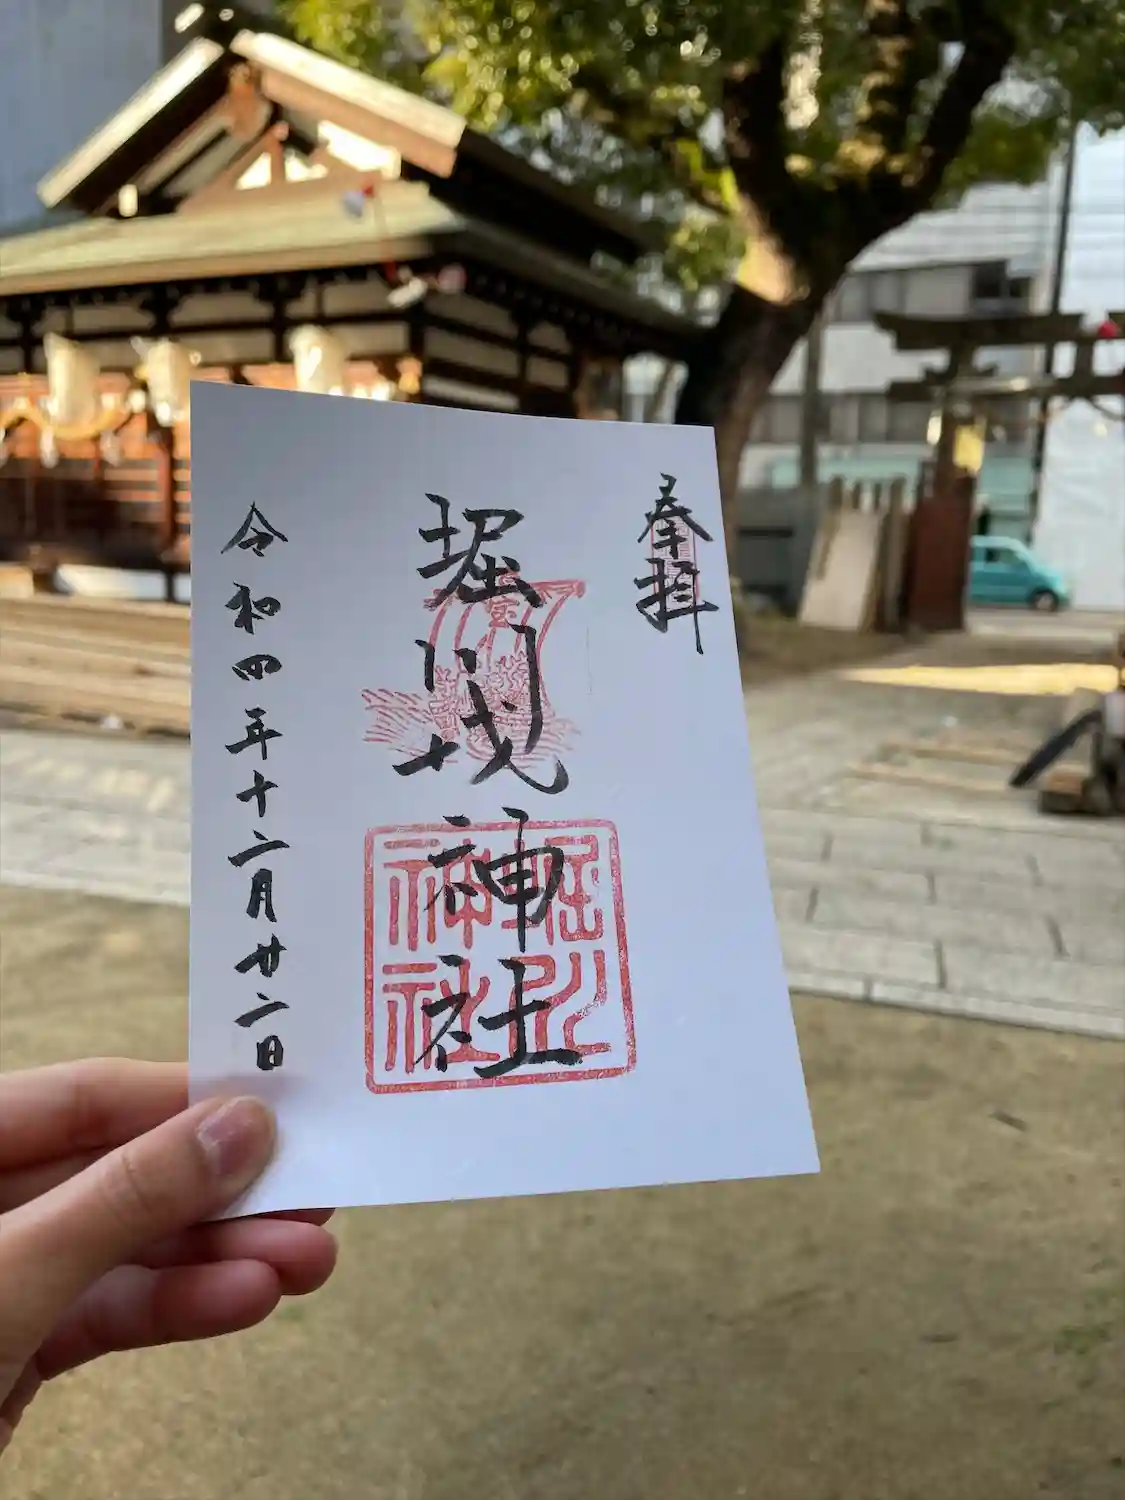 奉拝
堀川戎神社
令和四年十二月廿二日
宝
堀川
神社